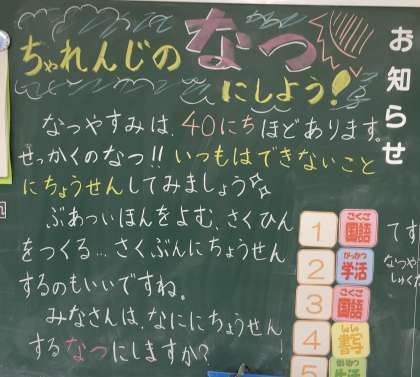 ちゃれんじの なつ
にしよう!
なつやすみは、40にちほどあります。
せっかくのなつ!!いつもはできないこと
にちょうせんしてみましょう
ぶあついほんをよむ、さくひん
をつくる…さくぶんにちょうせん
するのもいいですね。
みなさんは、なににちょうせん
するなつにしますか?
お知らせ
1 こくご 国語
2 がっかつ 学活
3 こくご 国語
4 しょしゃ 書写
5
てす
なつや
しゅく